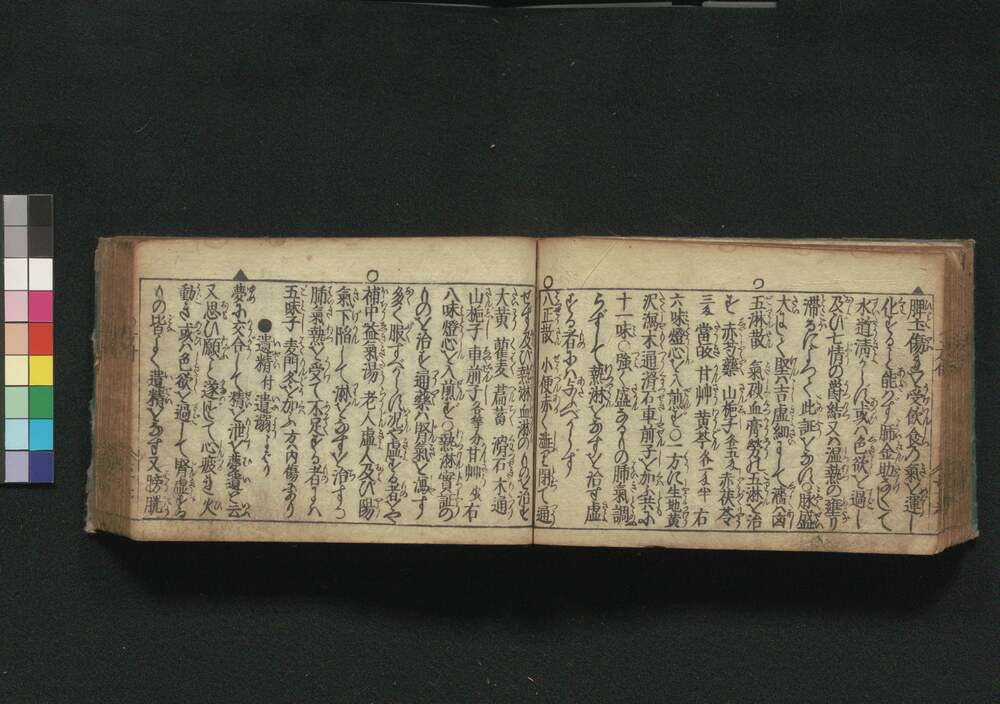 脾土傷を受飲食乃氣を運し
化をると能ハす肺金助を失て
水道清からに或ハ色欲を過し
及び七情の欝結又ハ温熱の
滞るによつて此証をなハ脉盛
大なハ堅ハ吉虚細にして濇ハ凶
五淋散 氣砂血膏勞の五淋を治
す 赤芍藥 山梔子各五文赤茯苓
三文 當皈 甘艸 黄芩各二文半 右
六味燈心を入煎も○一方に生地黄
沢瀉木通滑石車前子を加共に
十一味○強く盛なりの肺氣調
らずして熱淋をなすを治す虚
する者にハ与べからず
八正散 小便赤く澁を閉て通
せず及び熱淋血淋のりのを治す
大黄 瞿麦 萹蓄 滑石 木通
山梔子 車前子各等分甘艸少 右
八味燈心を入煎も○熱淋實証の
りのを治を通薬ハ腎氣を瀉す
多く服すべからに虚する者をや
補中益氣湯 老人虚人及び陽
氣下陥して淋をなすを治すも
肺氣熱を受て不足する者にハ
五味子 麦門冬を加ふ方内傷にあり
●遺精 付 遺溺
夢に交合して精を泄を夢遺と云
又思ひ願を遂ずして心疲き火
動き或ハ色欲を過して腎虚する
りの皆よく遺精をなす又膀胱